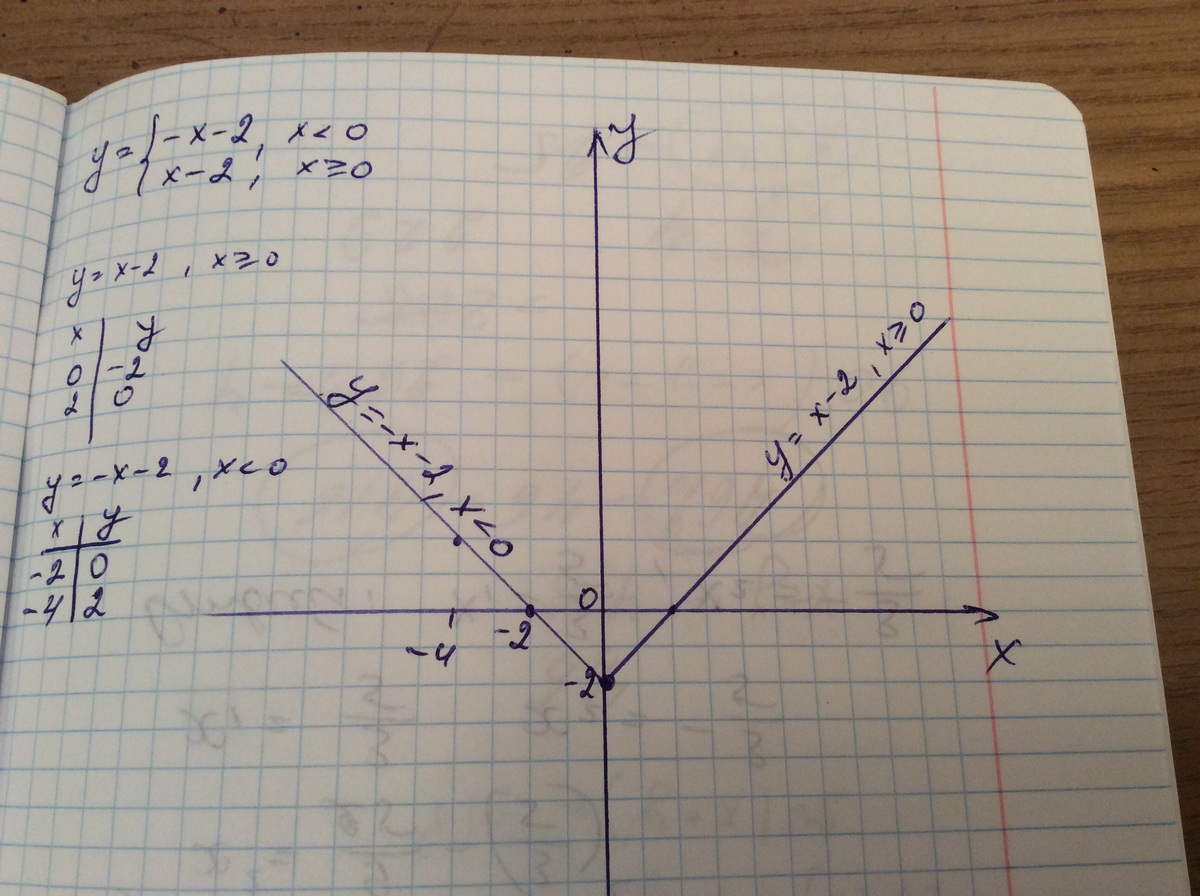 y = { -x-2, x<0
x-2, x≥0
y=x-2, x≥0
x | y
0 | -2
2 | 0
y=-x-2, x<0
x | y
-2 | 0
-4 | 2
y
y=-x-2, x<0
y=x-2, x≥0
0
-4
-2
-2
x